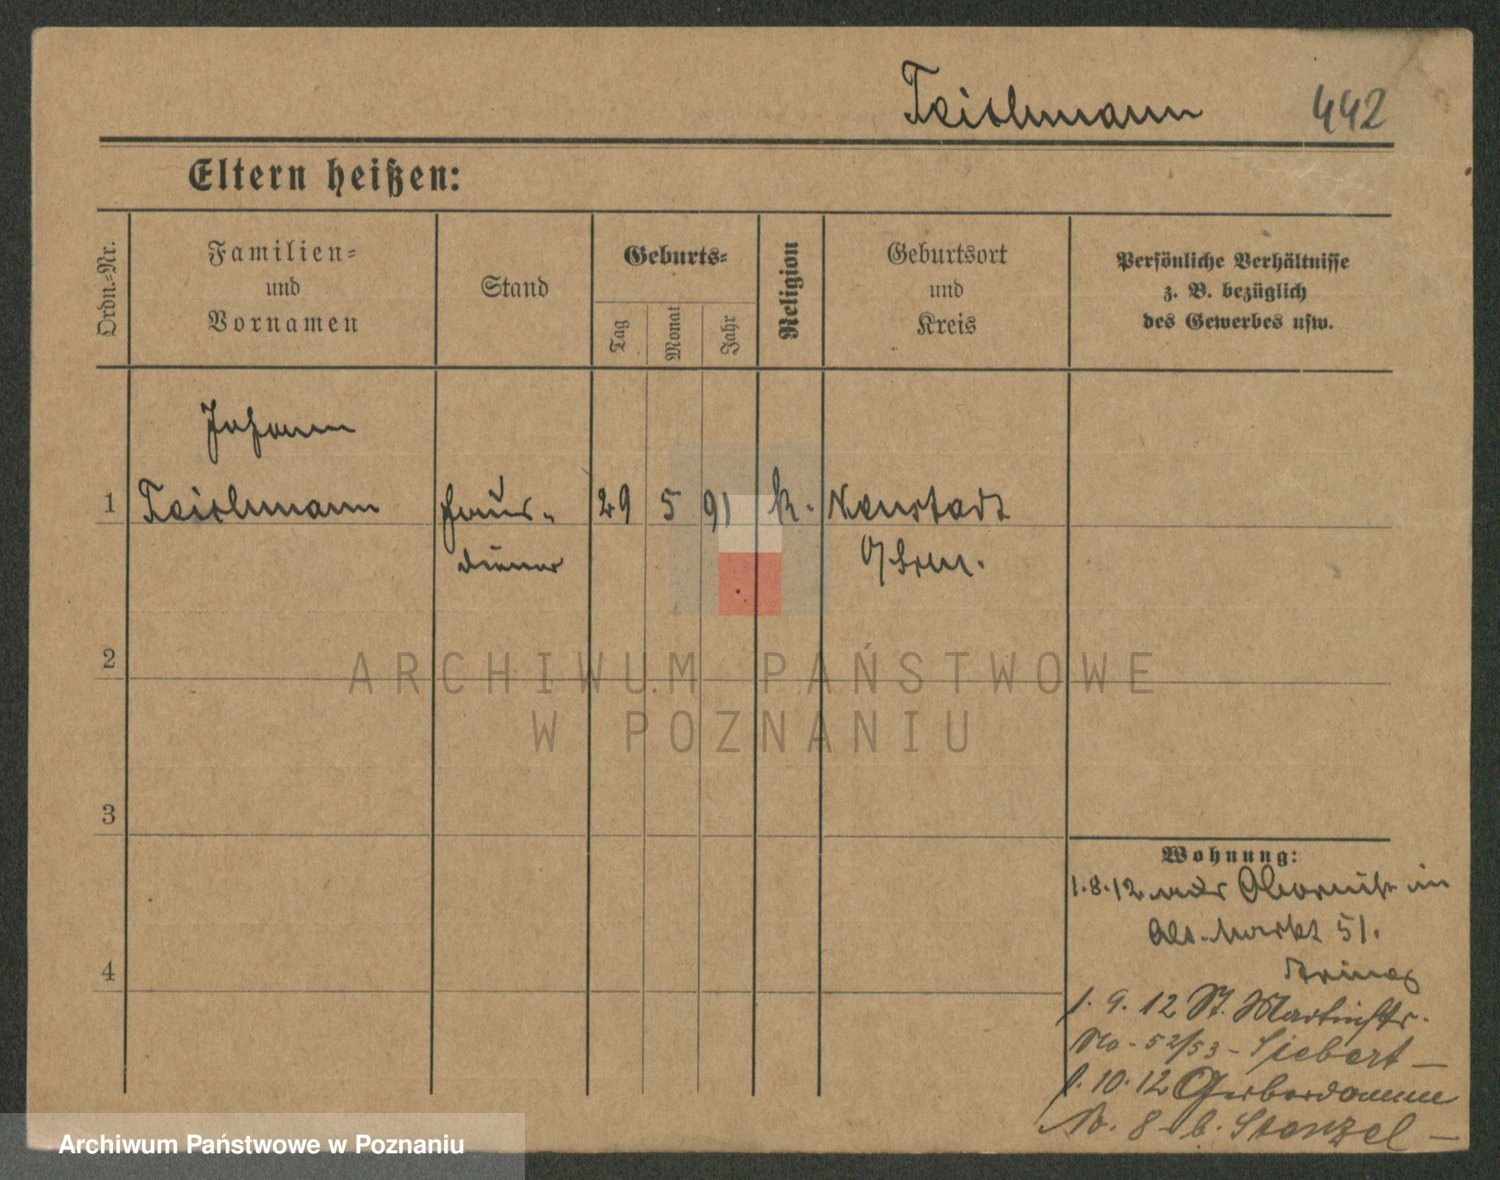 Teichmann 442
Eltern heißen:
Ordn.-Nr.
Familien-
und
Vornamen
Stand
Geburts-
Tag
Monat
Jahr
Religion
Geburtsort
und
Kreis
Persönliche Verhältnisse
z. B. bezüglich
des Gewerbes usw.
Johann
1 Teichmann Haus- 29 5 91 k. Neustadt
diener
2
ARCHIWUM PAŃSTWOWE
W POZNANIU
3
Wohnung:
1.8.12 Obornik
Alt. Markt 51.
4
1. 9. 12 St. Martinstr.
No - 52/53 - Siebert -
1. 10. 12 Gerberdamm
No. 8 - b. Stenzel -
Archiwum Państwowe w Poznaniu